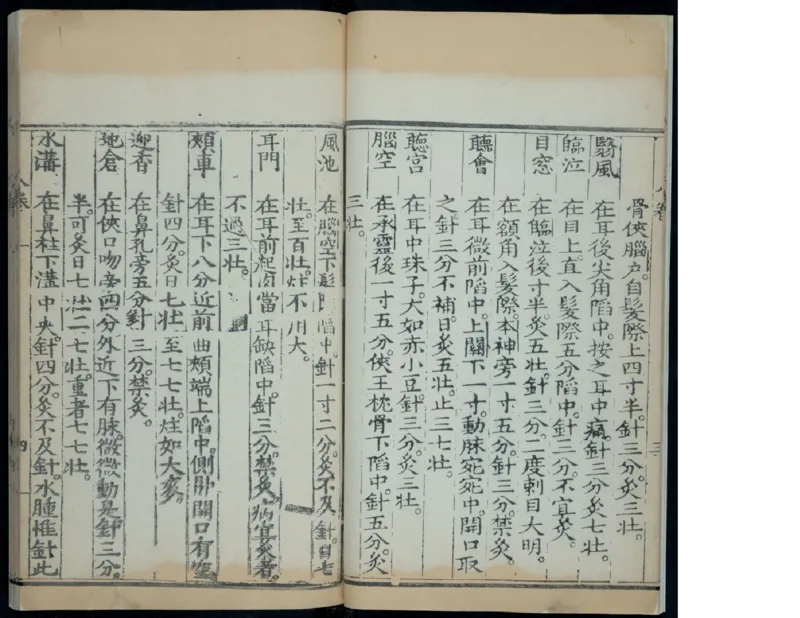 八卷
骨俠腦户。自髮際上四寸半。針三分。灸三壯。
翳風 在耳後尖角陷中。按之耳中痛。針三分。灸七壯。
臨泣 在目上。直入髮際五分陷中。針三分。不宜灸。
目窓 在臨泣後寸半。灸五壯。針三分。二度刺目大明。
在額角入髮際。本神旁一寸五分。針三分。禁灸。
聽會 在耳微前陷中。上關下一寸。動脉宛宛中。開口取
之。針三分不補。日灸五壯。止三七壯。
聽宮 在耳中珠子。大如赤小豆。針三分。灸三壯。
腦空 在承靈後一寸五分。俠玉枕骨下陷中。針五分。灸
三壯。
風池 在腦空下髮 陷中。針一寸二分。灸不及針。日七
壯。至百壯。炷不用大。
耳門 在耳前起肉當耳缺陷中。針三分。禁灸。病宜灸者。
不過三壯。
頰車 在耳下八分近前曲頰端上陷中。側臥開口有空
針四分。灸日七壯。至七七壯。炷如大麥。
迎香 在鼻孔旁五分。針三分。禁灸。
地倉 在俠口吻旁四分外近下有脉。微微動是。針三分
半。可灸日七壯。二七壯。重者七七壯。
水溝 在鼻柱下溝中央。針四分。灸不及針。水腫惟針此
八卷
四